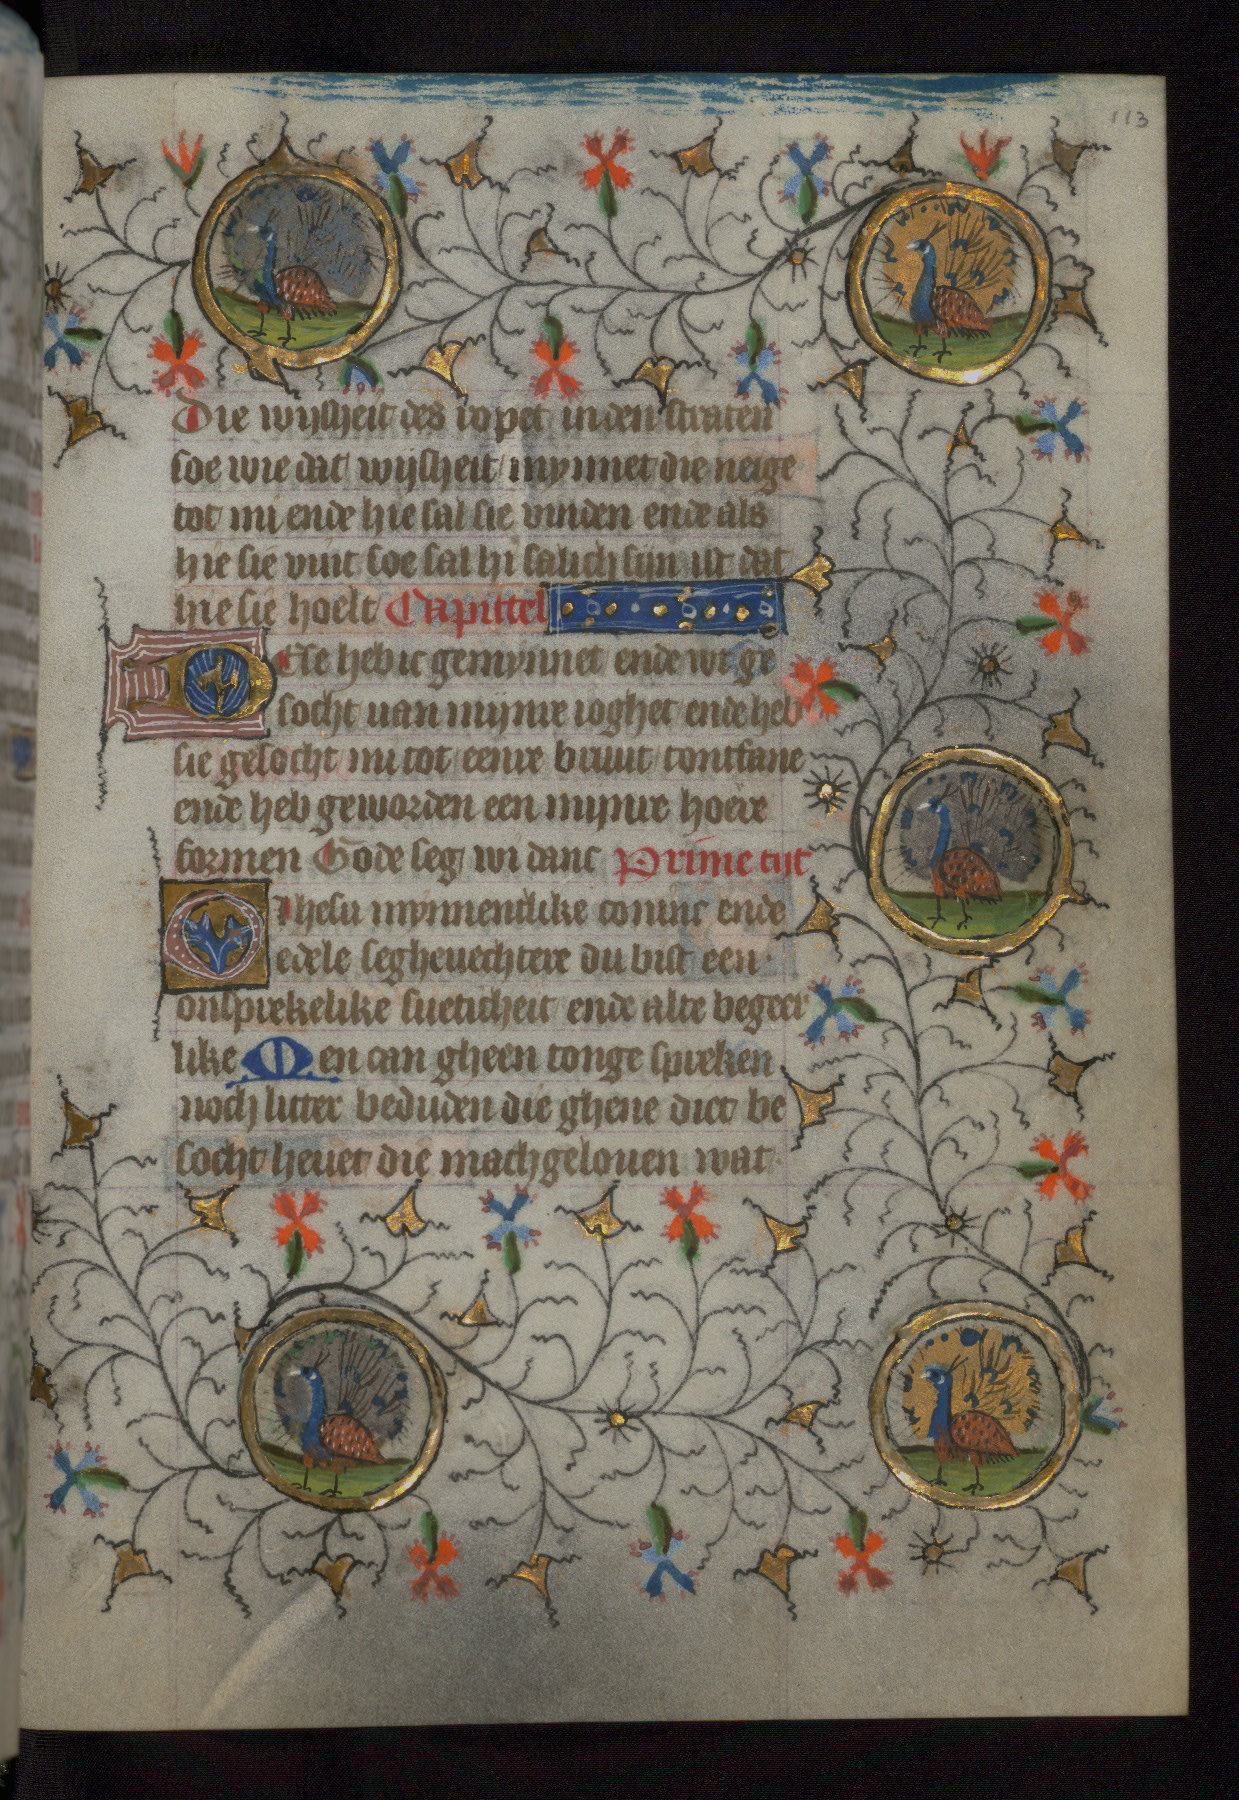 113
Die wijsheit des ropet in den straten
soe wie dat wijsheit mynnet die neige
tot mi ende hie sal sie vinden ende als
hie sie vint soe sal hi salich sijn ist dat
hie sie hoelt Capittel
Ese heb ic gemynnet ende wt ge
socht uan mijnre ioghet ende heb
sie gesocht mi tot eenre bruut tontfane
ende heb geworden een mijnre hoere
formen Gode seg wi danc Prime tijt
Ihesu mynnentlike coninc ende
edele segheuechtere du bist een
onsprekelike sueticheit ende alte begeer
like Men can gheen tonge spreken
noch litter beduden die ghene diet be
socht heuet die mach gelouen wat